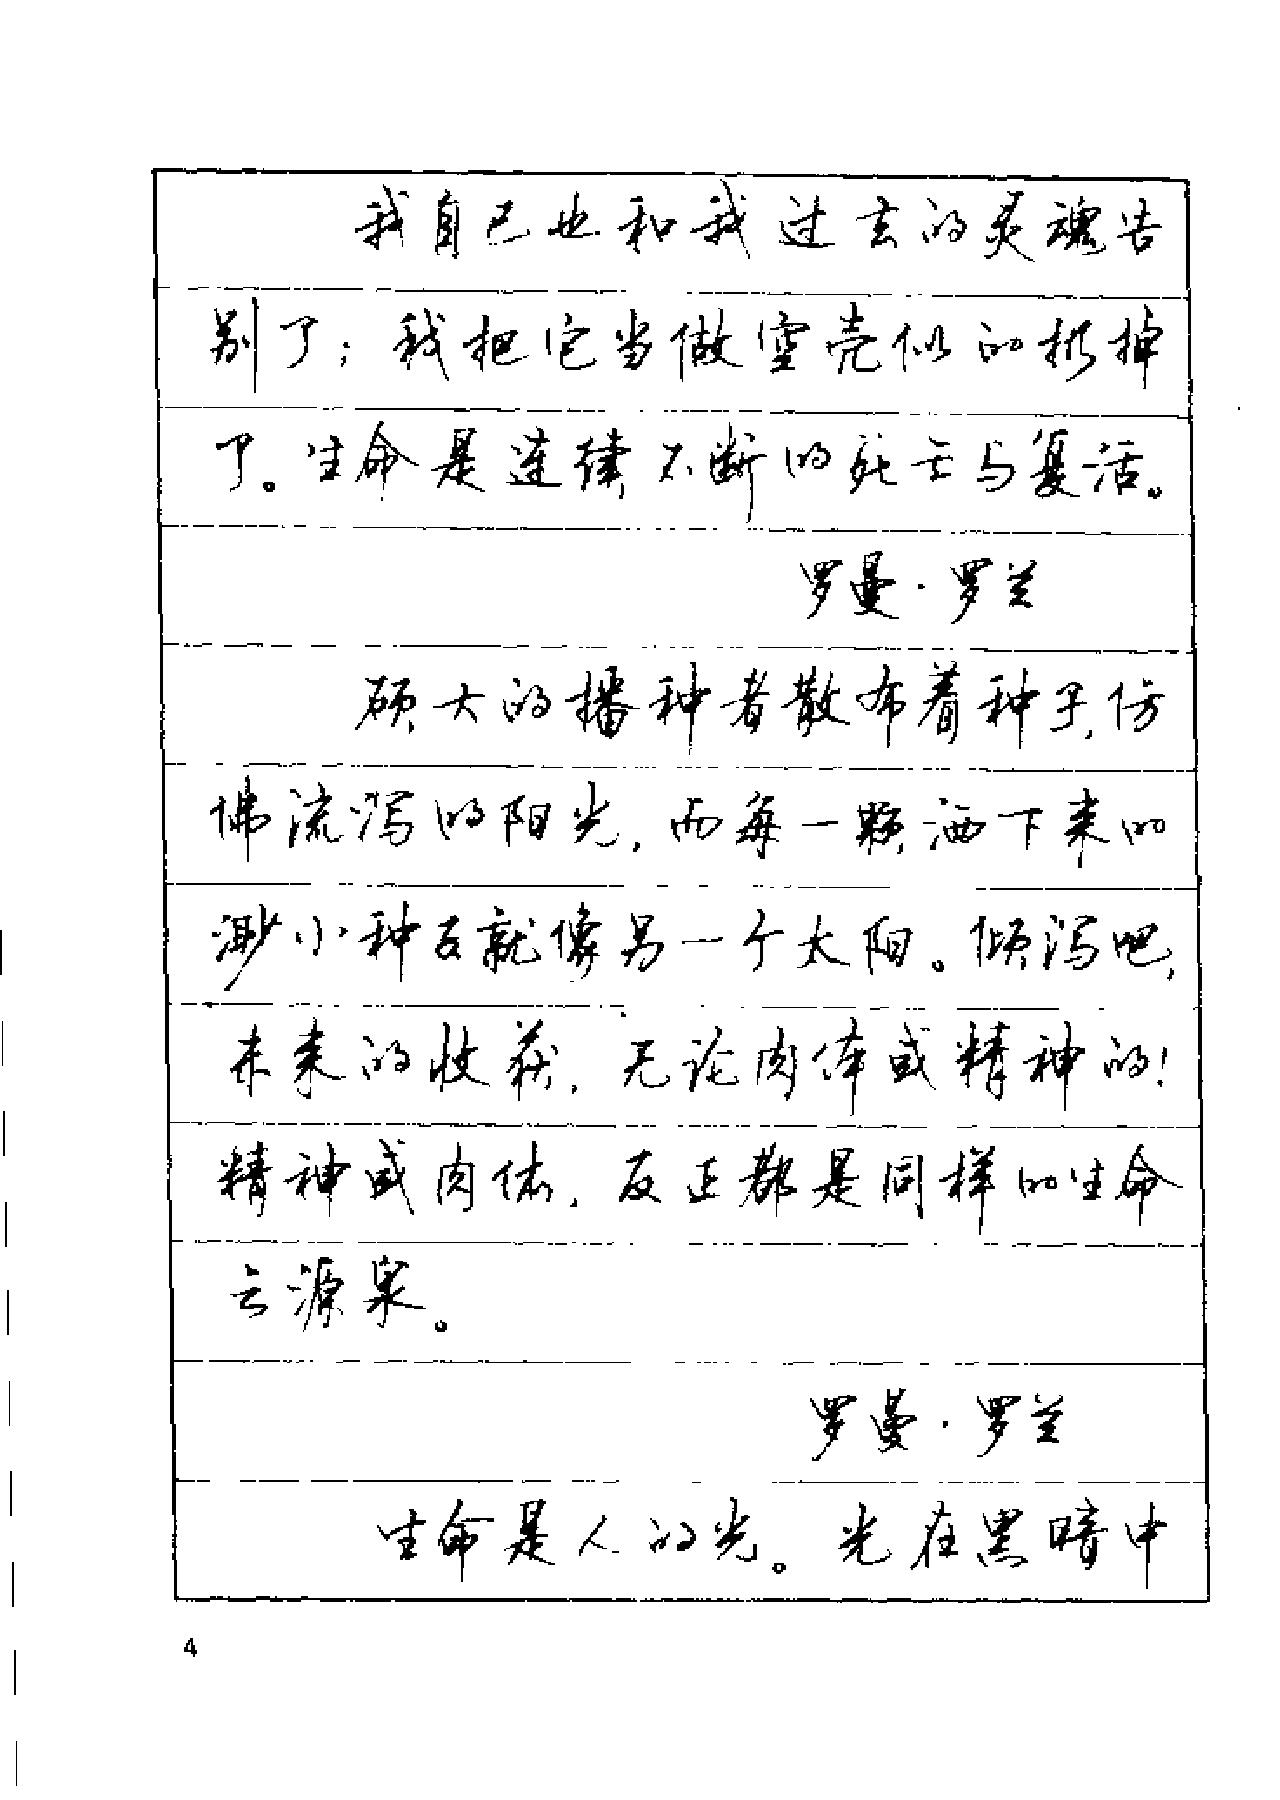 我自己也和我过去的灵魂告
别了；我把它当做空壳似的扔掉
了。生命是连续不断的死亡与复活。
罗曼·罗兰
硕大的播种者散布着种子，仿
佛流泻的阳光，而每一颗洒下来的
渺小种子就像另一个太阳。倾泻吧，
未来的收获，无论肉体或精神的！
精神或肉体，反正都是同样的生命
之源泉。
罗曼·罗兰
生命是人的光。光在黑暗中
4